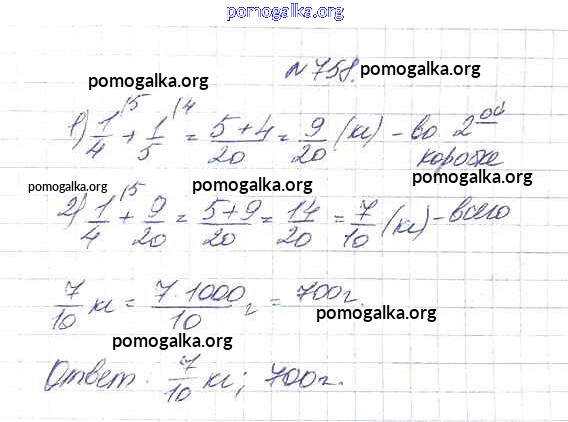 pomogalka.org
N 758. pomogalka.org
pomogalka.org
1) 1/4 \5 + 1/5 \4 = 5+4/20 = 9/20 (кг) - во 2ой
коробке
pomogalka.org pomogalka.org pomogalka.org
2) 1/4 \5 + 9/20 = 5+9/20 = 14/20 = 7/10 (кг) - всего
7/10 кг = 7·1000/10 г = 700г.
pomogalka.org
pomogalka.org
Ответ: 7/10 кг; 700г.